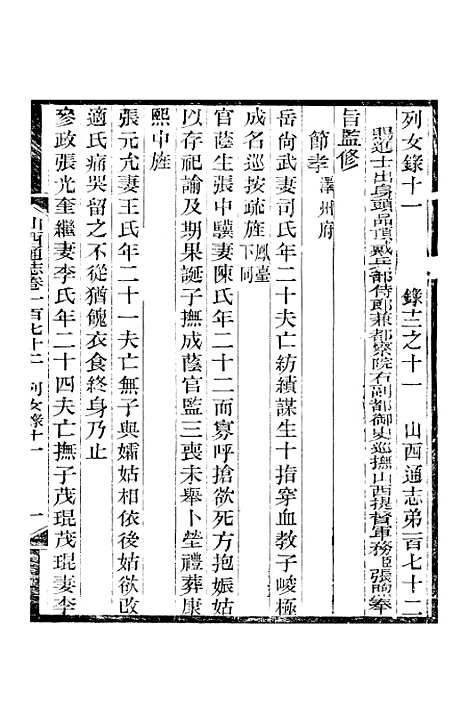 列女錄十一　錄十二之十一　山西通志弟一百七十二
賜進士出身頭品頂戴兵部侍郎兼都察院右副都御史巡撫山西提督軍務臣張煦奉
旨監修
節孝澤州府
岳尙武妻司氏年二十夫亡紡績謀生十指穿血教子峻極
成名巡按疏旌鳳臺下同
官蔭生張中驥妻陳氏年二十二而寡呼搶欲死方抱娠姑
以存祀諭及期果誕子撫成蔭官監三喪未舉卜塋禮葬康
熙中旌
張元允妻王氏年二十一夫亡無子與孀姑相依後姑欲改
適氏痛哭留之不從猶餽衣食終身乃止
參政張光奎繼妻李氏年二十四夫亡撫子茂琨茂琨妻李
山西通志卷一百七十二　列女錄十一　一